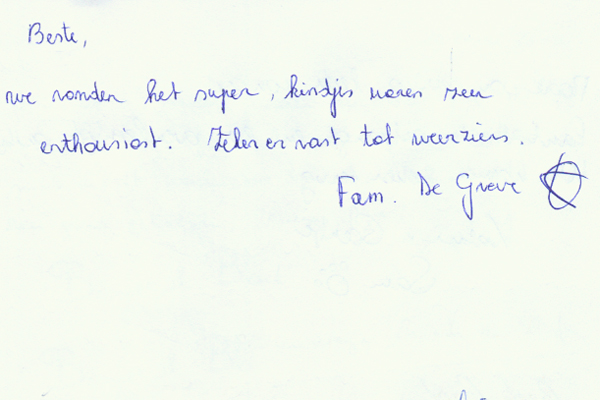 Beste,
we vonden het super, kindjes waren zeer
enthousiast. Zeker en vast tot weerziens.
Fam. De Greve